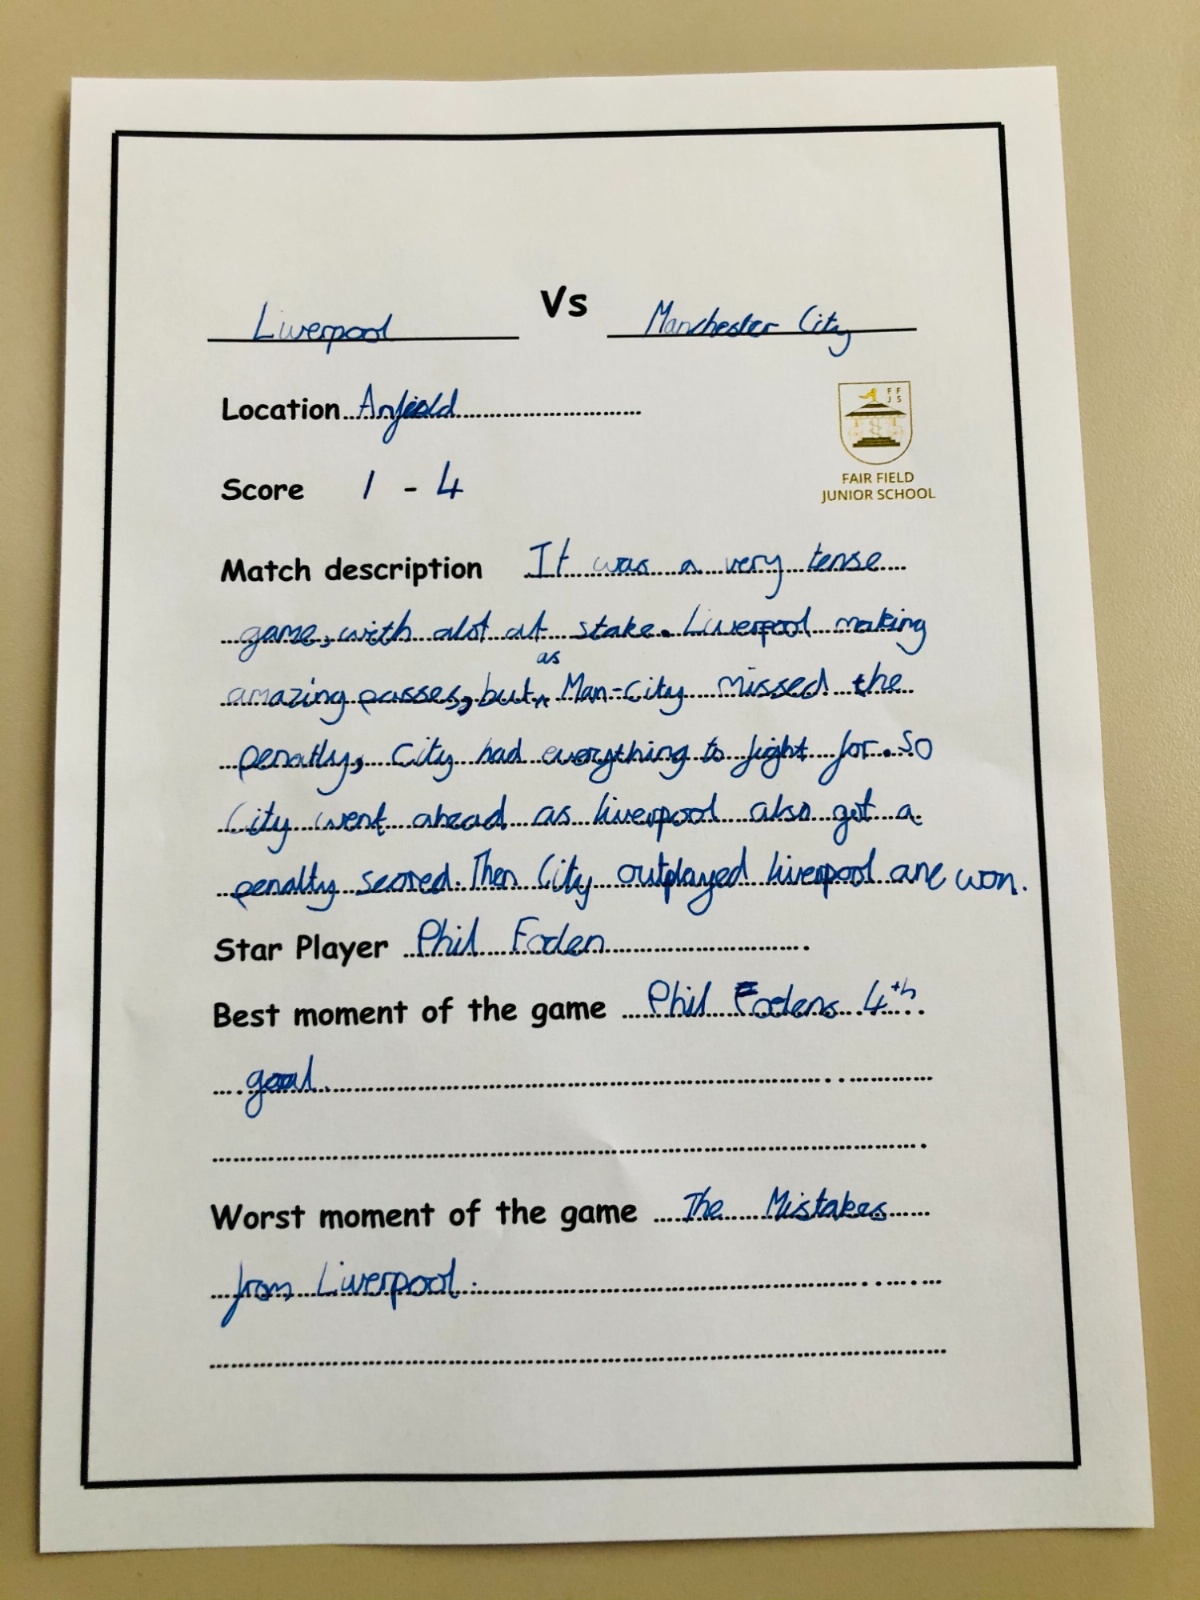 Liverpool Vs Manchester City
Location Anfield
FFJS
FAIR FIELD
JUNIOR SCHOOL
Score 1 - 4
Match description It was a very tense
game, with alot at stake. Liverpool making
amazing passes, but as Man-City missed the
penatly, City had everything to fight for. So
City went ahead as liverpool also got a
penalty scored. Then City outplayed liverpool and won.
Star Player Phil Foden
Best moment of the game Phil Fodens 4th
goal.
Worst moment of the game The Mistakes
from Liverpool.